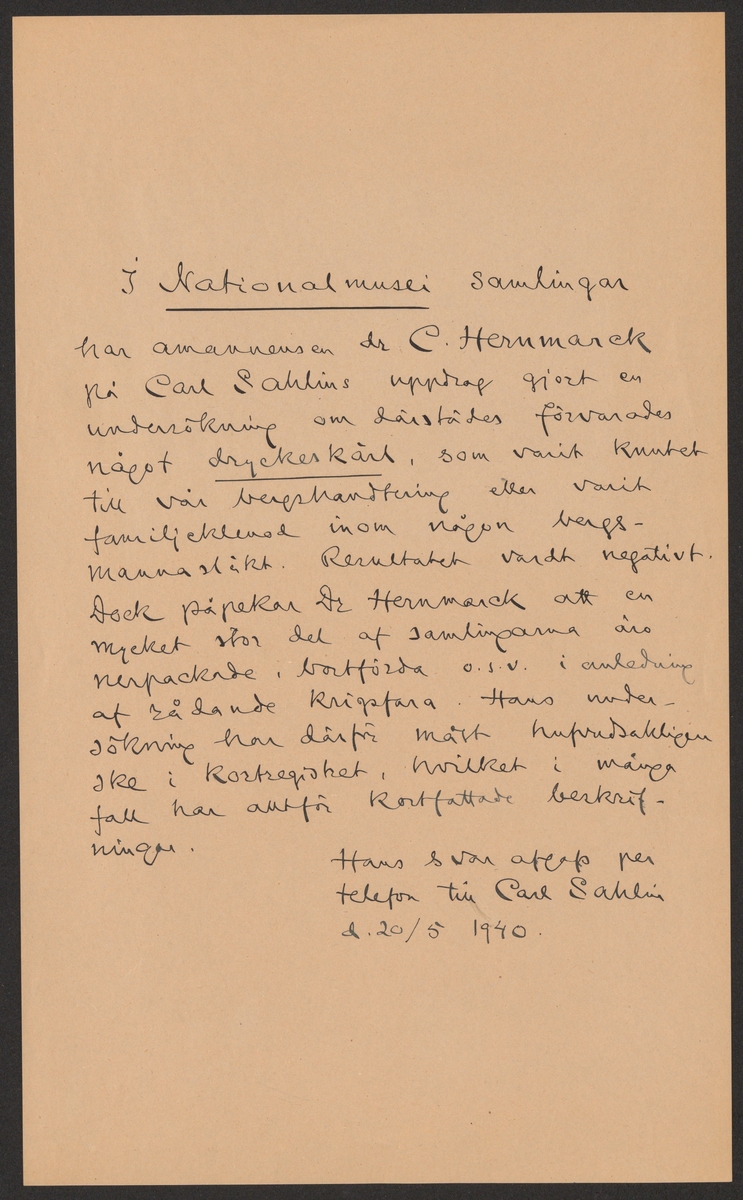 I Nationalmusei samlingar
har amanuensen dr C. Hernmarck
på Carl Sahlins uppdrag gjort en
undersökning om därstädes förvarades
något dryckeskärl, som varit knutet
till vår bergshandtering eller varit
familjeklenod inom någon bergs-
mannasläkt. Resultatet vardt negativt.
Dock påpekar Dr Hernmarck att en
mycket stor del af samlingarna äro
nerpackade, bortförda o.s.v. i anledning
af rådande krigsfara. Hans under-
sökning har därför måst hufvudsakligen
ske i kortregistret, hvilket i många
fall har alltför kortfattade beskrif-
ningar.
Hans svar afgafs per
telefon till Carl Sahlin
d. 20/5 1940.